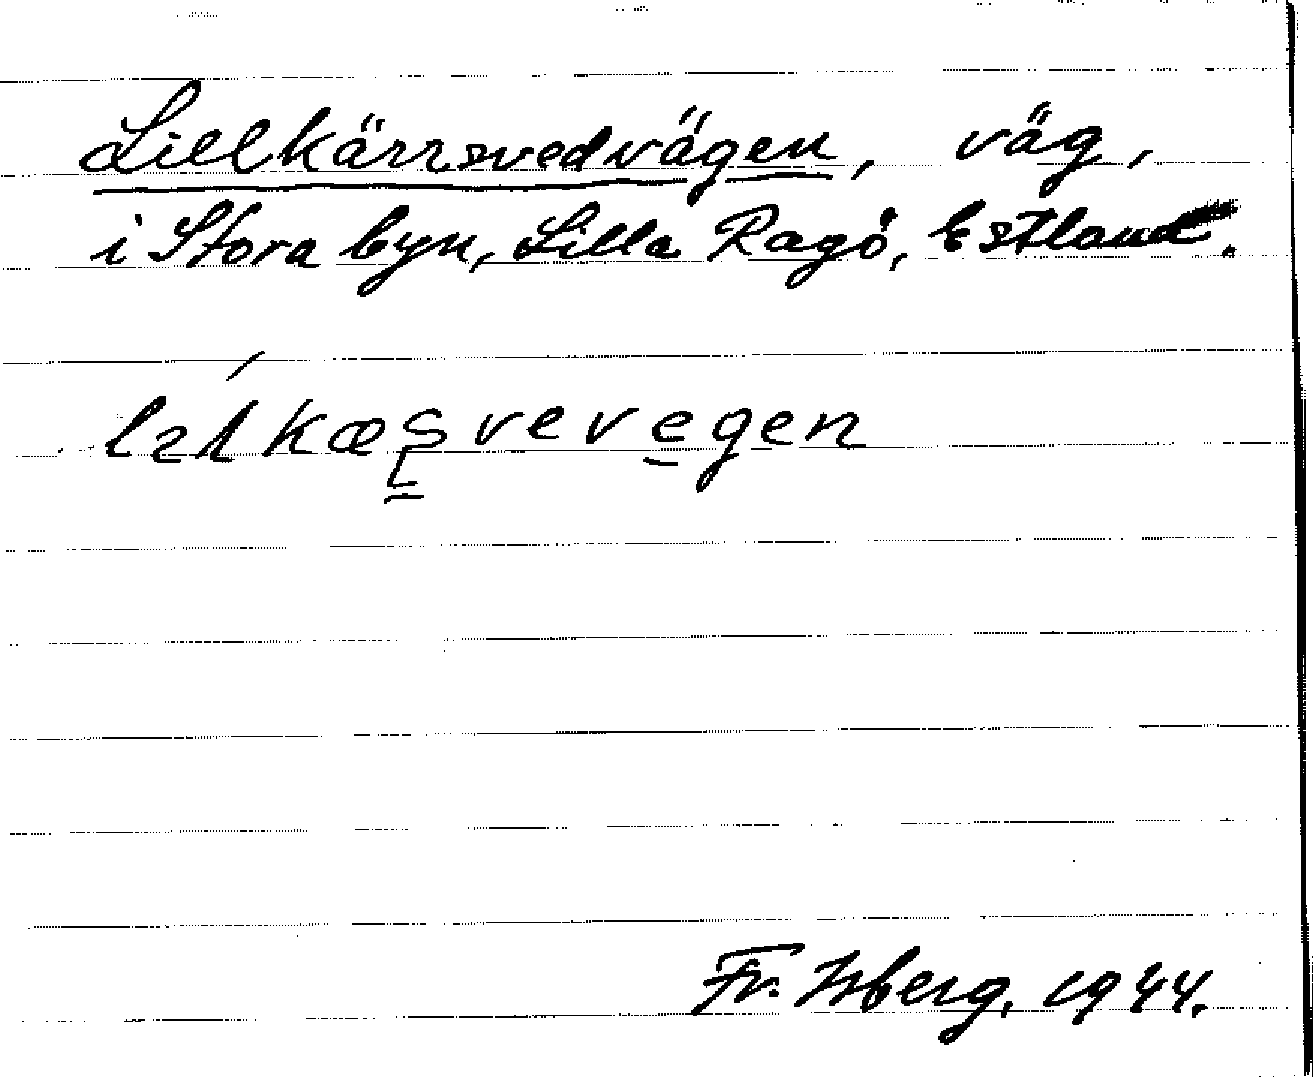 Lillkärrsvedvägen, väg,
i Stora byn, Lilla Ragö, Estland.
Fr. Isberg, 1944.